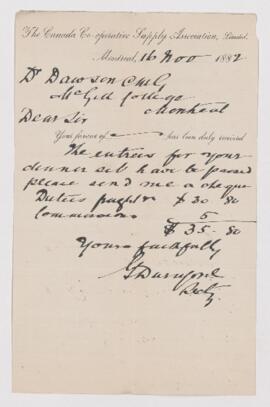 The Canada Co-operative Supply Association, Limited.
Montreal, 16 Nov 1882
Dr Dawson CMG
McGill College
Montreal
Dear Sir
Your favour of has been duly received
The entries for your
dinner set have be passed
please send me a cheque
Duties freight &c $ 30 80
Commission 5
$ 35 - 80
Yours faithfully
Durnford
Secty